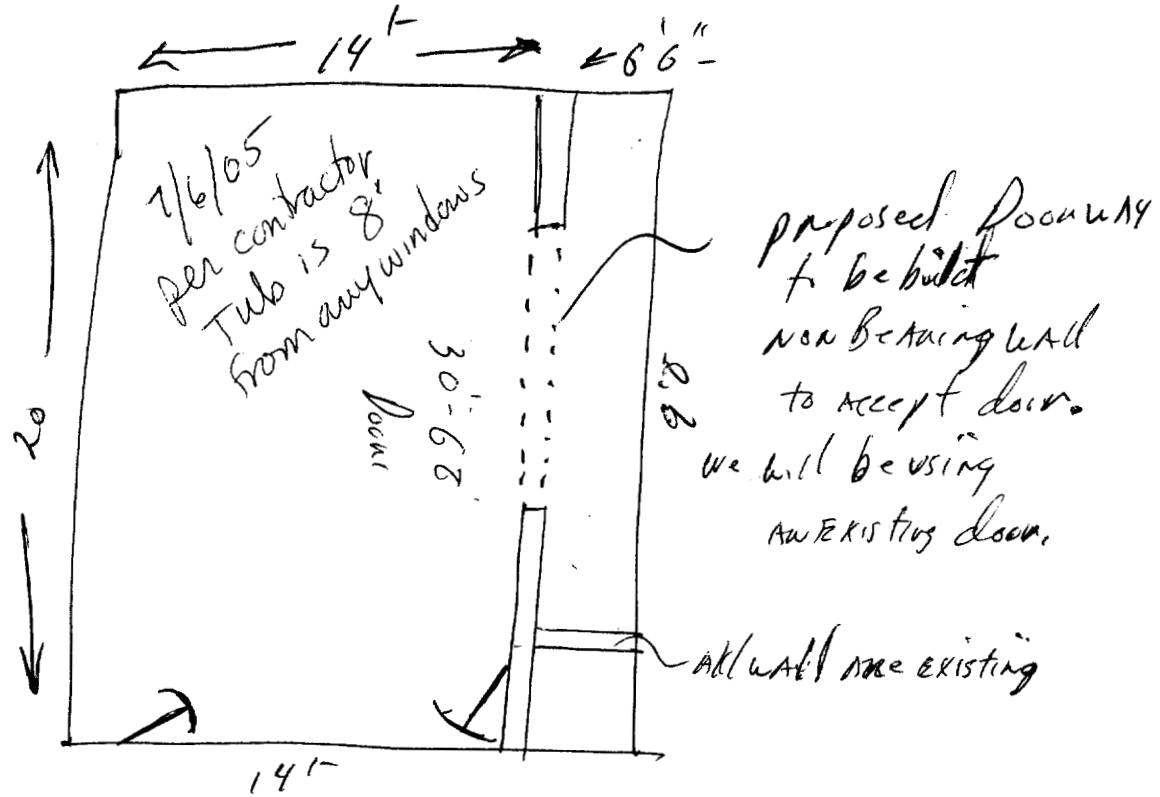 14'-
6'6"-
7/6/05
per contractor
Tub is 8'
from any windows
20
30"-68
Door
proposed Doorway
to be built
NON BeAring wall
to Accept door.
we will be using
AN Existing door.
All wall Are existing
14'-